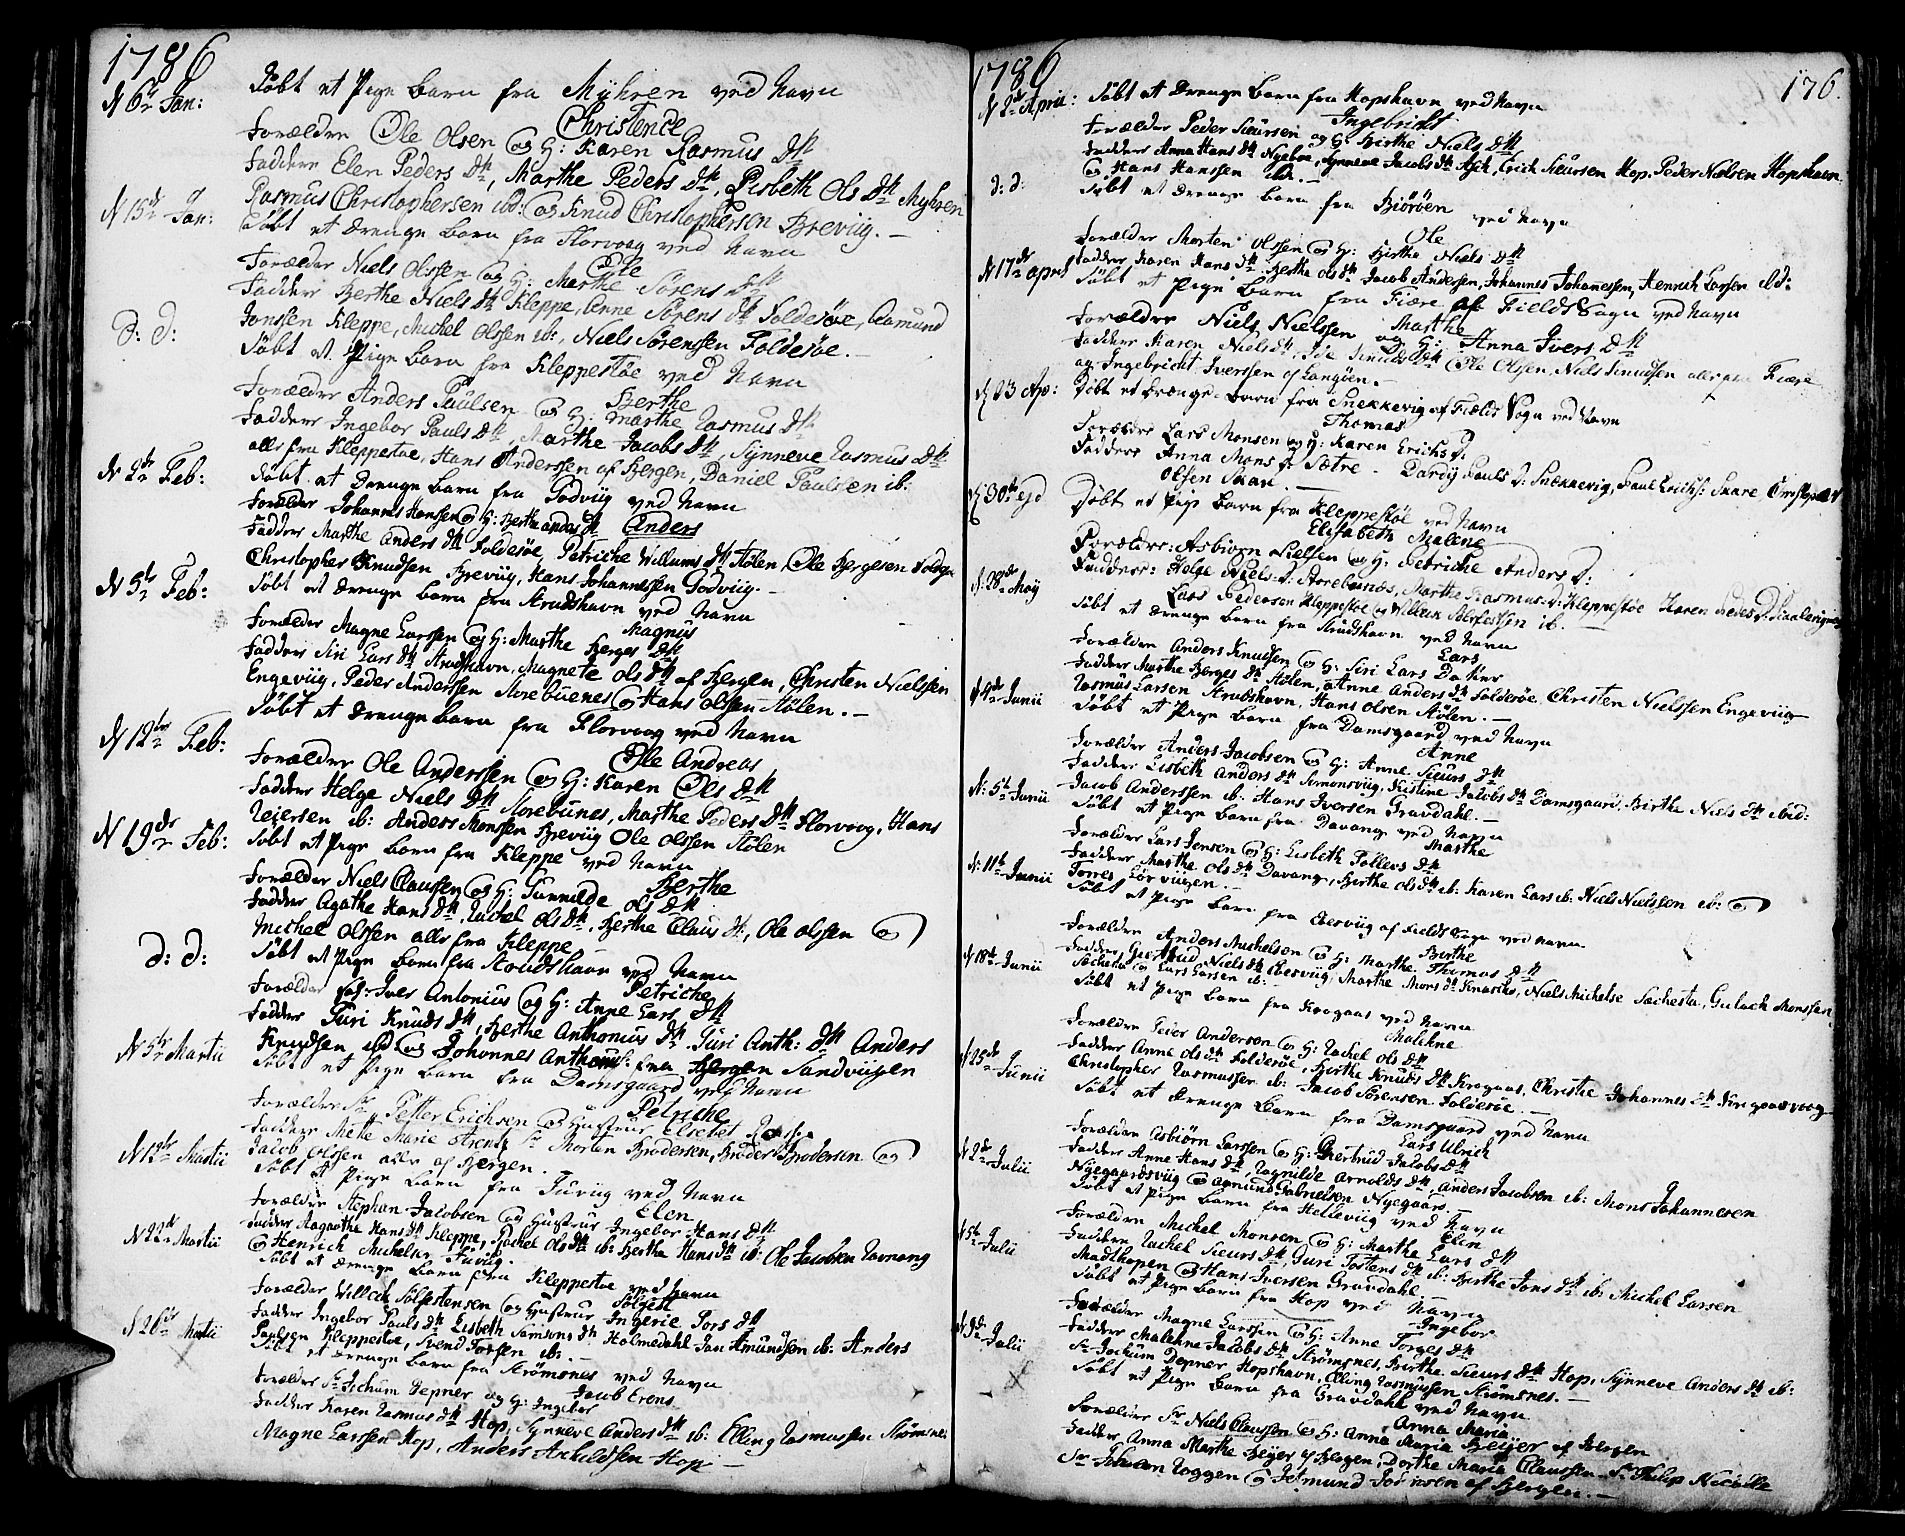 1786
d 6te Jan: Døbt et Pige barn fra Myhren ved Navn
Christence
Forældre Ole Olsen og H: Karen Rasmus dtr
Faddere Elen Peders dtr, Marthe Peders dtr, Lisbeth Ols dtr Myhren
Rasmus Christophersen ibd: og Knud Christophersen Breviig.
d 15de Jan: Døbt et drenge barn fra Florvoag ved Navn
Ole
Forælder Niels Olssen og H: Marthe Sørens dtr
Fadder Berthe Niels dtr Kleppe, Anne Sørens dtr Foldesøe, Aamund
Jonssen Kleppe, Michel Olssen ib:, Niels Sørenssen Foldesøe.
D: D: Døbt et Pige barn fra Kleppestøe ved Navn
Berthe
Forældre Anders Paulsen og H: Marthe Rasmus dtr
Faddere Ingebor Pauls dtr, Marthe Jacobs dtr, Synneve Rasmus dtr
alle fra Kleppestøe, Hans Anderssen af Bergen, Daniel Paulsen ib:
d 2de Feb: Døbt et drenge barn fra Godviig ved Navn
Anders
Forælder Johannes Hanssen og H: Berthe anders dtr
Fadders Marthe Anders dtr Foldesøe, Petriche Willums dtr Stølen, Ole Bergesen
Christopher Knudsen Breviig, Hans Johannessen Godviig.
d 5te Feb: Døbt et drenge barn fra Strudshavn ved Navn
Magnus
Forælder Magne Larssen og H: Marthe Berges dtr
Faddere Siri Lars dtr Strudshavn, Magnete Ols dtr af Bergen, Christen Nielssen
Engeviig, Peder Anderssen Storebuenes og Hans Olssen Stølen.
d 12te Feb: Døbt et drenge barn fra Florvoog ved Navn
Ole Andreas
Forælder Ole Anderssen og H: Karen Ols dtr
Fadder Helge Niels dtr Storebunes, Marthe Peders dtr Florvoog, Hans
Reiersen ib: Anders Monssen Breviig Ole Olssen Stølen
d 19de Feb: Døbt et Pige barn fra Kleppe ved Navn
Berthe
Forælder Niels Claussen og H: Gunnilde Ols dtr
Fadder Agathe Hans dtr, Rachel Ols dtr, Berthe Claus dtr, Ole Olssen og
Michel Olssen alle fra Kleppe
D: D: Døbt et Pige barn fra Strudshavn ved Navn
Petriche
Forælder Iver Antonius og H: Anne Lars dtr
Fadder Guri Knuds dtr, Berthe Anthonius dtr, Guri Anth: dtr Anders
Knudsen ibd og Johannes Anthonius: fra Bergen Sandviigen
d 5te Martii Døbt et Pige barn fra Damsgaard ved Navn
Petriche
Forælder Sr Petter Erichsen og Hustrue Elsebet
Faddere Mette Marie Arentz Sr Morten Brodersen, Broder Brodersen og
Jacob Olssen alle af Bergen.
d 12te Martii Døbt et Pige barn fra Juviig ved Navn
Elen
Forældre Stephan Jacobsen og Hustrue Ingebor Hans dtr
Fadder Aagaathe Hans dtr Kleppe, Rachel Ols dtr ib: Berthe Hans dtr ib: Ole Jacobsen Ravnang
og Henrich Michelsen Juviig.
d 22de Martii Døbt et drenge barn fra Kleppestøe ved Navn
Solfest
Forælder Willach Solfestensen og Hustrue Ingerie Tors dtr
Fadder Ingebor Pauls dtr Lisbeth Simons dtr Holmedahl Jan Amundsen ib: Anders
Paulsen Kleppestøe, Svend Torsen ib:
d 26de Martii Døbt et drenge barn fra Strømsnes ved Navn
Jacob Erens
Forælder Sr Jochum Depner og H: Ingebor
Fadder Karen Rasmus dtr Hop, Synneve Anders dtr ib: Elling Rasmussen Strømsnes
Magne Larssen Hop, Anders Askeldssen Hop
1786
176.
d 2de April: Døbt et drenge barn fra Hopshavn ved Navn
Ingebricht
Forælder Peder Siursen og H: Birthe Niels dtr
Fadders Anna Hans dtr Nygboe, Synneve Jacobs dtr Ask, Erich Siursen Hop, Peder Nielsen Hopshavn
og Hans Hanssen ibd.
D: D: Døbt et drenge barn fra Biørøen ved Navn
Ole
Forælder Morten Olssen og H: Birthe Niels dtr
Fadder Karen Hans dtr, Berthe Ols dtr Jacob Andersen, Johannes Johanessen, Henrich Larsen ibd:
d 17de April Døbt et Pige barn fra Fiære af Fields Sogn ved Navn
Marthe
Forældre Niels Nielssen og H: Anna Ivers dtr
Fadder Karen Niels dtr, Ide Knuds dtr Ole Olssen, Niels Knudssen alle fra Fiære
og Ingebricht Iverssen af Langøen.
d 23 Ap: Døbt et Drænge-barn fra Snekkevig af Fields Sogn ved Navn
Thomas
Forældre Lars Monsen og H: Karen Erichs D.
Faddere Anna Mons D. Sætre. Dardij Pauls D: Snekkevig, Paul Erichs: Skare, Christopher
Olsen Skar.
d 30te ejd Døbt et Pige barn fra Kleppestøe ved Navn
Elisabeth Malene
Forældre: Asbiørn Nielsen og H: Petriche Anders D:
Faddere: Helge Niels D: Storebunæs, Marthe Rasmus D: Kleppestøe Karen Peders D:
Lars Pedersen Kleppestøe og Willak Solfestsen ib.
d: 28de Maij Døbt et drenge barn fra Strudshavn ved Navn
Lars
Forælder Anders Knudsen og H: Siri Lars Datter
Fadder Marthe Berges dtr Stølen, Anne Anders dtr Foldesøe Christen Nielssen Engeviig
Rasmus Larsen Strudshavn, Hans Olsen Stølen.
d 4de Junii Døbt et Pige barn fra Damsgaard ved Navn
Anne
Forælder Anders Jacobsen og H: Anne Siurs dtr
Fadder Lisbeth Anders dtr Simonsviig, Kistine Jacobs dtr Damsgaard, Birthe Niels dtr ibid:
Jacob Anderssen ib: Hans Iversen Gravdahl.
d: 5te Junii Døbt et Pige barn fra Davang ved Navn
Marthe
Forælder Lars Jensen og H: Lisbeth Tollevs dtr
Fadder Marthe Ols dtr Davang, Birthe Ols dtr ib: Karen Lars ib: Niels Nielssen ib: og
Torres Lørviigen.
d: 11te Junii Døbt et Pige barn fra Ebesviig af Fields Sogn ved Navn
Birthe
Forælder Anders Michelsen og H: Marthe Thomas dtr
Fadder Giertrud Niels dtr Ebesviig, Marthe Mons dtr Knarviig, Niels Michelse Sæchesta, Gulach Monssen
Sæchesta og Lars Larsen ib:
d 18de Junii Døbt et Pige barn fra Krogaas ved Navn
Malehne
Forælder Peder Andersen og H: Rachel Ols dtr
Fadder Anne Ols dtr Foldesøe, Birthe Knuds dtr Krogaas, Christie Johannes dtr
Christopher Rasmussen ib: Jacob Sørensen Foldesøe.
d 25de Junii Døbt et drenge barn fra Damsgaard ved Navn
Lars Ulrich
Forælder Asbiørn Larssen og H: Giertrud Jacobs dtr
Fadder Anne Hans dtr, Ragnilde Arnolds dtr, Anders Jacobsen ib: Mons Johannesen
Nyegaardsviig og Amund Gabrielsen Nyegaard.
d 2de Julii Døbt et Pige barn fra Helleviig ved Navn
Elen
Forælder Michel Monsen og H: Marthe Lars dtr
Faddere Rachel Siurs dtr, Guri Tostens dtr ib: Birthe Jons dtr ib: Michel Larsen
Madskopen og Hans Iversen Gravdahl.
d 5te Julii Døbt et Pige barn fra Hop ved Navn
Ingebor
Forælder Magne Larssen og H: Anne Torges dtr
Fadder Malehne Jacobs dtr Strømsnes, Birthe Siurs dtr Hop, Synneve Anders dtr ib:
Sr Jochum Depner Hopshavn, Elling Rasmussen Strømsnes.
d 9de Julii Døbt et Pige barn fra Gravdahl ved Navn
Anna Maria
Forælder Sr Niels Claussen og H: Anna Maria Beijer af Bergen
Fadder Anna Marthe Beijer af Bergen, Dorthe Marie Claussen Sr Philip
Sr Johan Roggen og Jetmund Johnsen af Bergen.